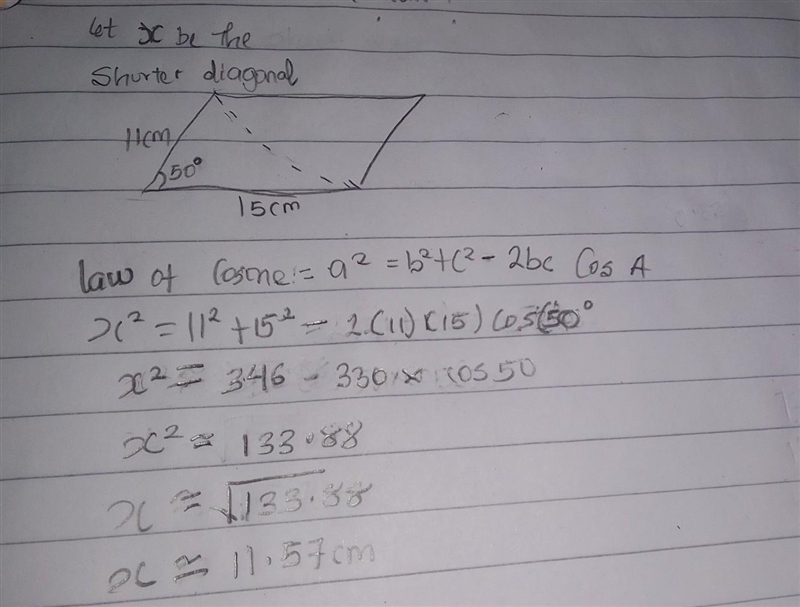 let x be the
Shorter diagonal
11cm
50°
15cm
law of Cosine:= a² = b²+c² - 2bc Cos A
x² = 11² + 15² - 2.(11)(15) cos(50°
x² = 346 - 330 x cos 50
x² ≃ 133.88
x ≃ √133.88
x ≃ 11.57cm